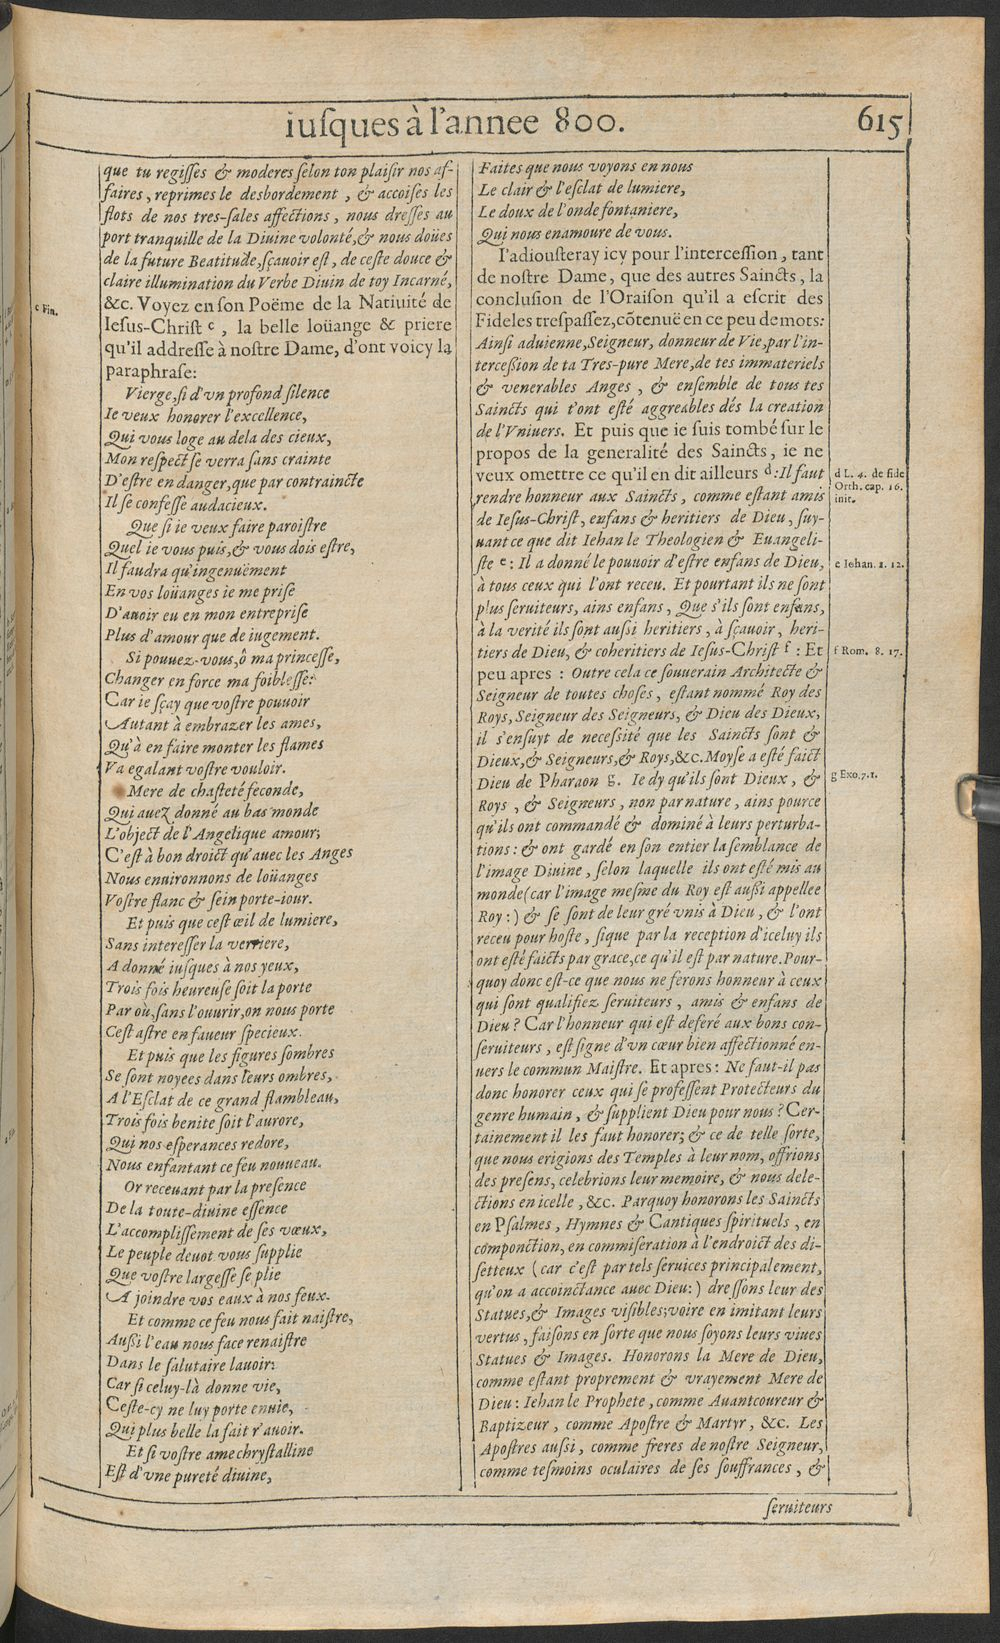 iuſques à l'annee 800.
615
que tu regiſſes & moderes ſelon ton plaiſir nos af-
faires, reprimes le desbordement, & accoiſes les
flots de nos tres-ſales affections, nous dreſſes au
port tranquille de la Diuine volonté, & nous doües
de la future Beatitude, ſçauoir eſt, de ceſte douce &
claire illumination du Verbe Diuin de toy Incarné,
&c. Voyez en ſon Poëme de la Natiuité de
Ieſus-Chriſt c, la belle loüange & priere
qu'il addreſſe à noſtre Dame, d'ont voicy la
paraphraſe:
c Fin.
Vierge, ſi d'vn profond ſilence
Ie veux honorer l'excellence,
Qui vous loge au dela des cieux,
Mon reſpect ſe verra ſans crainte
D'eſtre en danger, que par contraincte
Il ſe confeſſe audacieux.
Que ſi ie veux faire paroiſtre
Quel ie vous puis, & vous dois eſtre,
Il faudra qu'ingenuëment
En vos loüanges ie me priſe
D'auoir eu en mon entrepriſe
Plus d'amour que de iugement.
Si pouuez-vous, ô ma princeſſe,
Changer en force ma foibleſſe:
Car ie ſçay que voſtre pouuoir
Autant à embrazer les ames,
Qu'à en faire monter les flames
Va egalant voſtre vouloir.
Mere de chaſteté feconde,
Qui auez donné au bas monde
L'obiect de l'Angelique amour;
C'eſt à bon droict qu'auec les Anges
Nous enuironnons de loüanges
Voſtre flanc & ſein porte-iour.
Et puis que ceſt œil de lumiere,
Sans intereſſer la verriere,
A donné iuſques à nos yeux,
Trois fois heureuſe ſoit la porte
Par où, ſans l'ouurir, on nous porte
Ceſt aſtre en faueur ſpecieux.
Et puis que les figures ſombres
Se ſont noyees dans leurs ombres,
A l'Eſclat de ce grand flambleau,
Trois fois benite ſoit l'aurore,
Qui nos eſperances redore,
Nous enfantant ce feu nouueau.
Or receuant par la preſence
De la toute-diuine eſſence
L'accompliſſement de ſes vœux,
Le peuple deuot vous ſupplie
Que voſtre largeſſe ſe plie
A joindre vos eaux à nos feux.
Et comme ce feu nous fait naiſtre,
Auſſi l'eau nous face renaiſtre
Dans le ſalutaire lauoir:
Car ſi celuy-là donne vie,
Ceſte-cy ne luy porte enuie,
Qui plus belle la fait r'auoir.
Et ſi voſtre ame chryſtalline
Eſt d'vne pureté diuine,
Faites que nous voyons en nous
Le clair & l'eſclat de lumiere,
Le doux de l'onde fontaniere,
Qui nous enamoure de vous.
I'adiouſteray icy pour l'interceſſion, tant
de noſtre Dame, que des autres Saincts, la
concluſion de l'Oraiſon qu'il a eſcrit des
Fideles treſpaſſez, cõtenuë en ce peu de mots:
Ainſi aduienne, Seigneur, donneur de Vie, par l'in-
terceſſion de ta Tres-pure Mere, de tes immateriels
& venerables Anges, & enſemble de tous tes
Saincts qui t'ont eſté aggreables dés la creation
de l'Vniuers. Et puis que ie ſuis tombé ſur le
propos de la generalité des Saincts, ie ne
veux omettre ce qu'il en dit ailleurs d: Il faut
rendre honneur aux Saincts, comme eſtant amis
de Ieſus-Chriſt, enfans & heritiers de Dieu, ſuy-
uant ce que dit Iehan le Theologien & Euangeli-
ſte e: Il a donné le pouuoir d'eſtre enfans de Dieu,
à tous ceux qui l'ont receu. Et pourtant ils ne ſont
plus ſeruiteurs, ains enfans, Que s'ils ſont enfans,
à la verité ils ſont auſſi heritiers, à ſçauoir, heri-
tiers de Dieu, & coheritiers de Ieſus-Chriſt f: Et
peu apres: Outre cela ce ſouuerain Architecte &
Seigneur de toutes choſes, eſtant nommé Roy des
Roys, Seigneur des Seigneurs, & Dieu des Dieux,
il s'enſuyt de neceſſité que les Saincts ſont &
Dieux, & Seigneurs, & Roys, &c. Moyſe a eſté faict
Dieu de Pharaon g. Ie dy qu'ils ſont Dieux, &
Roys, & Seigneurs, non par nature, ains pource
qu'ils ont commandé & dominé à leurs perturba-
tions: & ont gardé en ſon entier la ſemblance de
l'image Diuine, ſelon laquelle ils ont eſté mis au
monde (car l'image meſme du Roy eſt auſſi appellee
Roy:) & ſe ſont de leur gré vnis à Dieu, & l'ont
receu pour hoſte, ſique par la reception d'iceluy ils
ont eſté faicts par grace, ce qu'il eſt par nature. Pour-
quoy donc eſt-ce que nous ne ferons honneur à ceux
qui ſont qualifiez ſeruiteurs, amis & enfans de
Dieu? Car l'honneur qui eſt deferé aux bons con-
ſeruiteurs, eſt ſigne d'vn cœur bien affectionné en-
uers le commun Maiſtre. Et apres: Ne faut-il pas
donc honorer ceux qui ſe profeſſent Protecteurs du
genre humain, & ſupplient Dieu pour nous? Cer-
tainement il les faut honorer; & ce de telle ſorte,
que nous erigions des Temples à leur nom, offrions
des preſens, celebrions leur memoire, & nous dele-
ctions en icelle, &c. Parquoy honorons les Saincts
en Pſalmes, Hymnes & Cantiques ſpirituels, en
componction, en commiſeration à l'endroict des di-
ſetteux (car c'eſt par tels ſeruices principalement,
qu'on a accoinctance auec Dieu:) dreſſons leur des
Statues, & Images viſibles; voire en imitant leurs
vertus, faiſons en ſorte que nous ſoyons leurs viues
Statues & Images. Honorons la Mere de Dieu,
comme eſtant proprement & vrayement Mere de
Dieu: Iehan le Prophete, comme Auantcoureur &
Baptizeur, comme Apoſtre & Martyr, &c. Les
Apoſtres auſſi, comme freres de noſtre Seigneur,
comme teſmoins oculaires de ſes ſouffrances, &
d L. 4. de fide
Orth. cap. 16.
init.
e Iehan. 1. 12.
f Rom. 8. 17.
g Exo. 7. 1.
ſeruiteurs